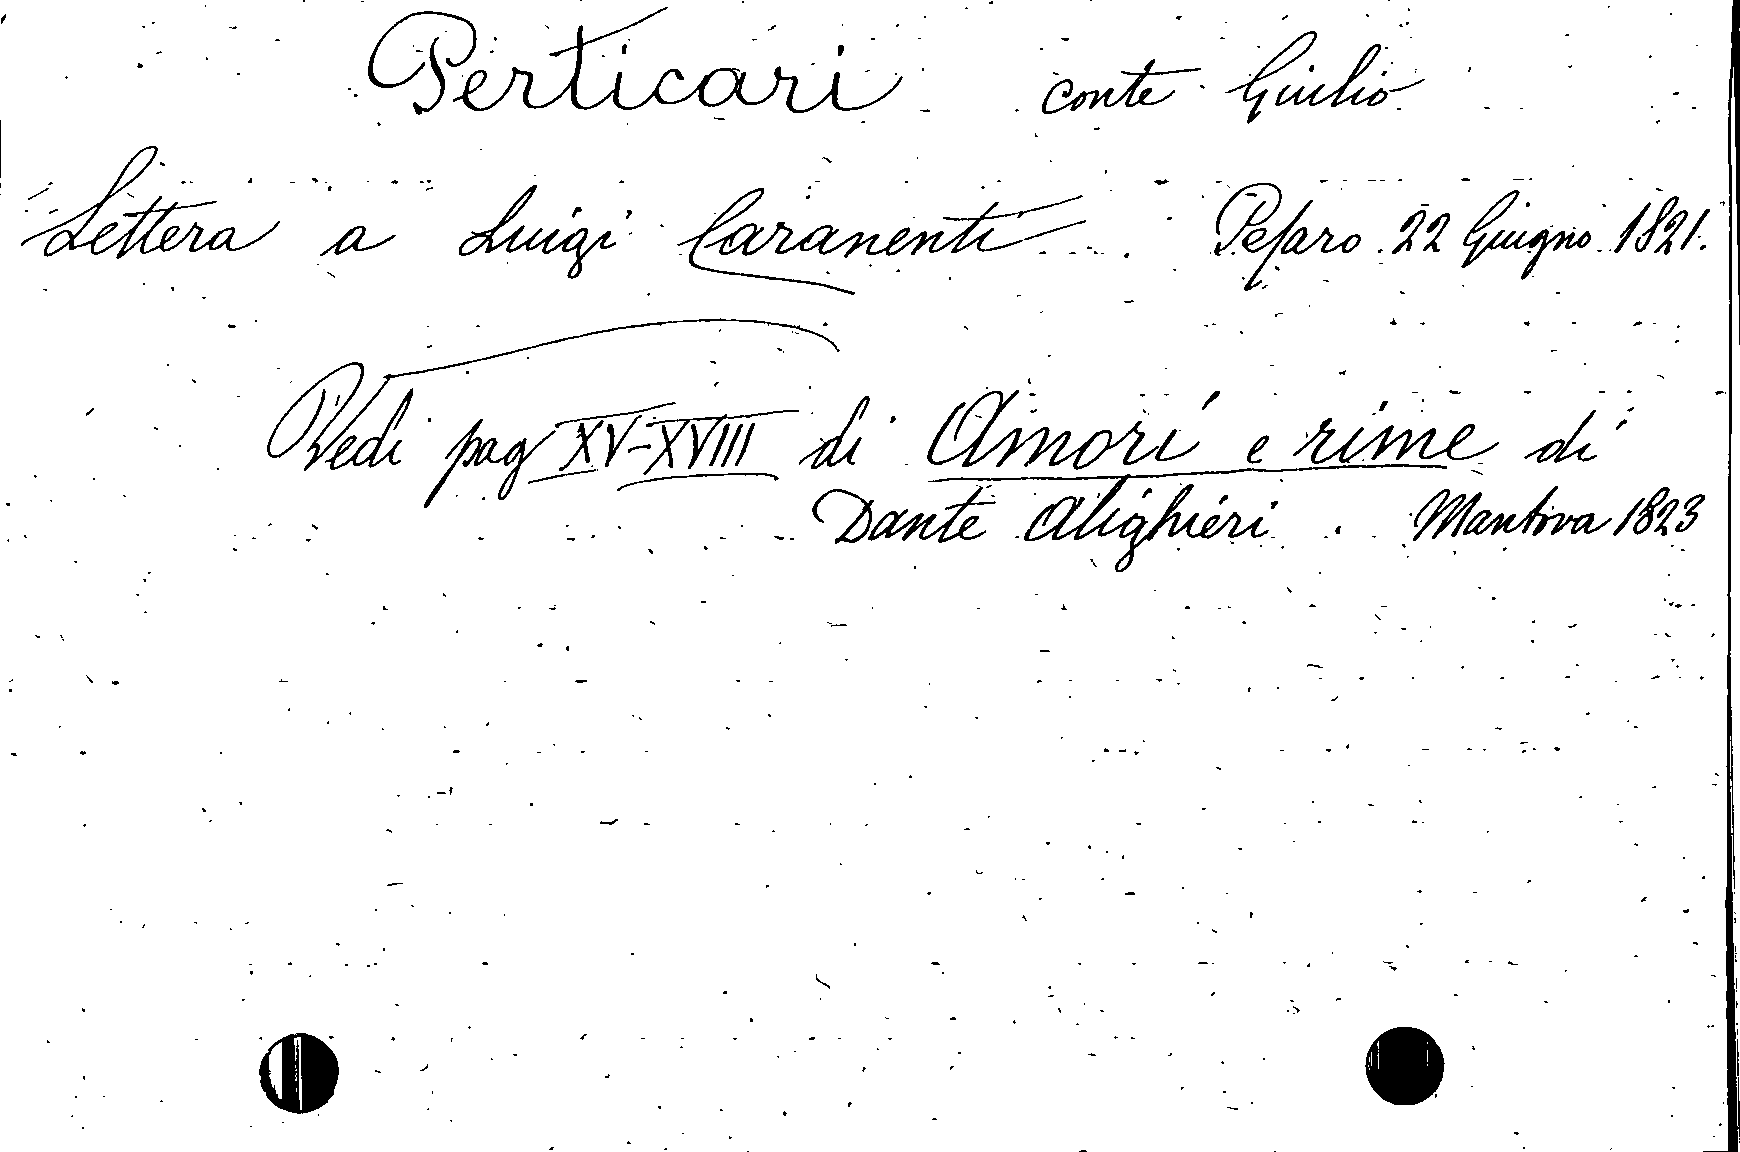 Perticari conte Giulio
Lettera a Luigi Caranenti. Peſaro 22 Giugno 1821.
Vedi pag XV-XVIII di Amori e rime di
Dante Alighieri. Mantova 1823